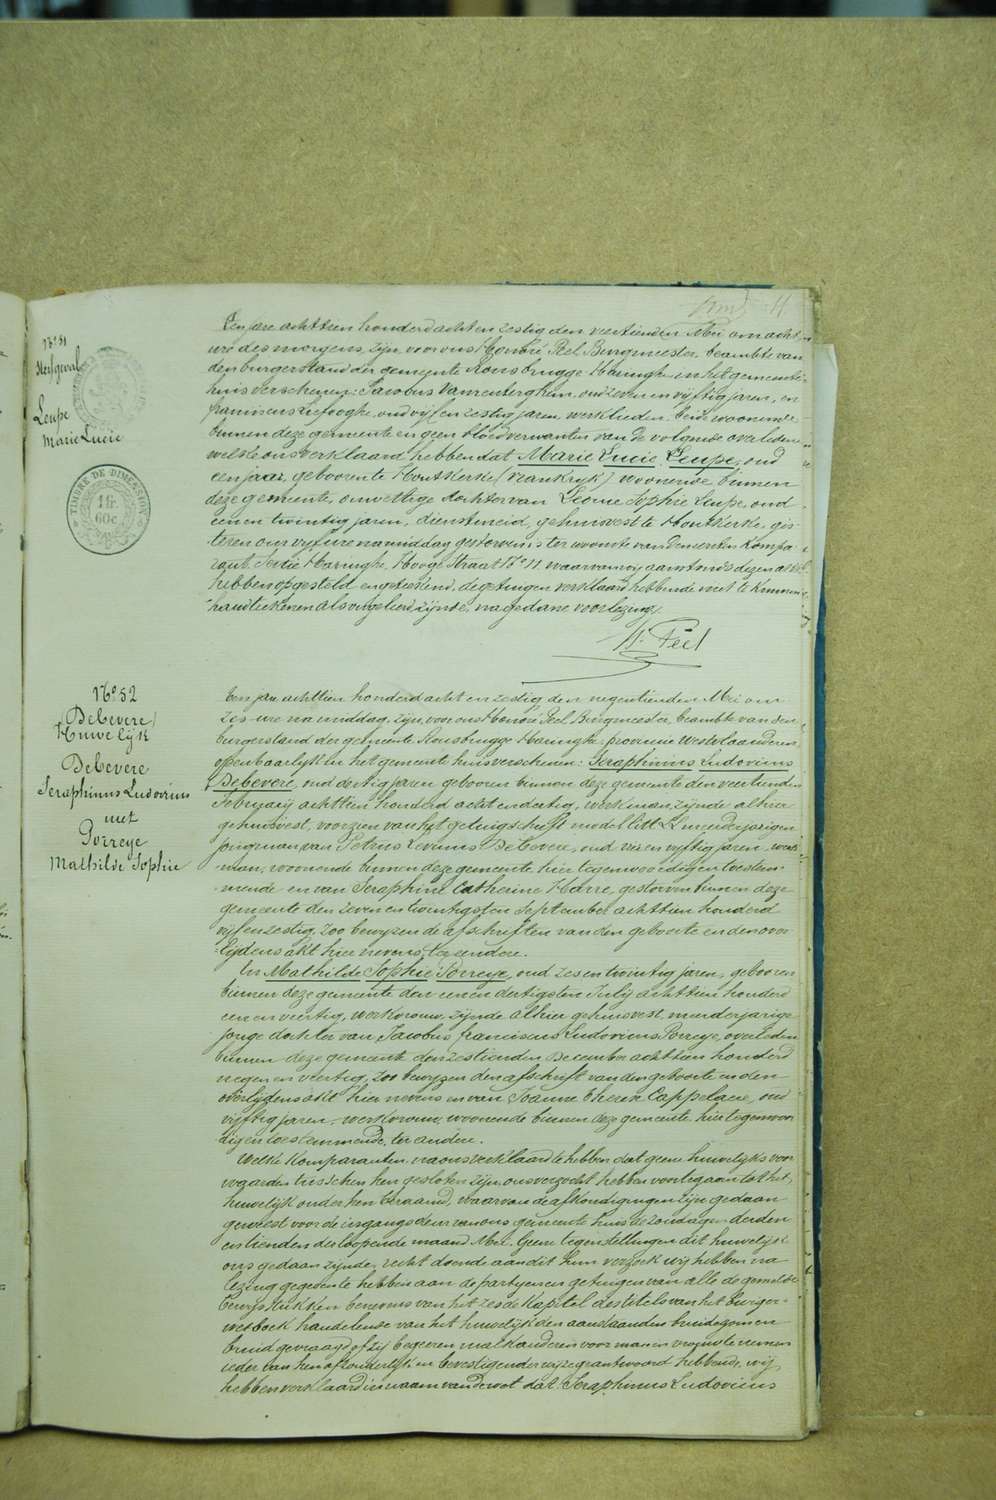 N° 51
Sterfgeval
Leupe
Marie Lucie
TIMBRE DE DIMENSION
1 fr.
60 c.
11
Een jare achttien honderd acht en zestig den veertienden Mei om acht
ure des morgens, zijn, voor ons Honoré Peel Burgmeester, beambte van
den burgerstand der gemeente Rousbrugge-Haringhe in het gemeente
huis verschenen: Jacobus Vanrenterghem, oud zeven en vijftig jaren, en
franciscus Liefooghe, oud vijf en zestig jaren, werklieden, beide woonende
binnen deze gemeente en geen bloedverwanten van de volgende overledene
welke ons verklaard hebben dat Marie Lucie Leupe, oud
een jaar, geboren te Houtkerke (Frankryk) woonende binnen
deze gemeente, onwettige dochter van Leonie Sophie Leupe, oud
een en twintig jaren, dienstmeid, gehuisvest te Houtkerke, gis-
teren om vyf ure namiddag gestorven is ter woonste van den eersten Kompa-
rant, Sectie Haringhe, Hooge Straat N° 11. waarvan wij aanstonds dezen akt
hebben opgesteld en geteekend, de getuigen verklaard hebbende niet te kunnen
handteekenen als ongeleerd zijnde, na gedane voorlezing.
H. Peel
N° 52
Debevere
Huwelijk
Debevere
Seraphinus Ludovicus
met
Porreye
Mathilde Sophie
Een jare achttien honderd acht en zestig den negentienden Mei om
zes ure namiddag, zijn, voor ons Honoré Peel Burgmeester, beambte van den
burgerstand der gemeente Rousbrugge Haringhe, provincie Westvlaanderen
openbaarlijk in het gemeente huis verschenen: Seraphinus Ludovicus
Debevere, oud dertig jaren, geboren binnen deze gemeente den veertienden
February achttien honderd acht en dertig, werkman, zijnde alhier
gehuisvest, voorzien van het getuigschrift model litt. L meerderjarigen
jongman van Petrus Levinus Debevere, oud vier en vyftig jaren, werk-
man, woonende binnen deze gemeente, hier tegenwoordig en toestem-
mende en van Seraphine Catherine Harre, gestorven binnen deze
gemeente den zeven en twintigsten September achttien honderd
vijf en zestig, zoo bewyzen de afschriften van den geboorte en den over-
lijdens akt hier nevens, ter eendere.
En Mathilde Sophie Porreye, oud zes en twintig jaren, geboren
binnen deze gemeente den een en dertigsten July achttien honderd
een en veertig, werkvrouw, zijnde alhier gehuisvest, meerderjarige
jonge dochter van Jacobus franciscus Ludovicus Porreye, overleden
binnen deze gemeente den zestienden December achttien honderd
negen en veertig, zoo bewyzen den afschrift van den geboorte en den
overlijdens akt hier nevens en van Joanne Therese Cappelaere, oud
vijftig jaren, werkvrouw, woonende binnen deze gemeente hier tegenwoor-
dig en toestemmende, ter andere.
Welke Komparanten, na ons verklaard te hebben dat geene huwelijks voor-
waarden tusschen hen gesloten zijn, ons verzocht hebben voort te gaan tot het
huwelijk onder hen beraamd, waarvan de afkondigingen zijn gedaan
geweest voor de ingangs deur van ons gemeente huis de zondagen derden
en tienden der loopende maand Mei. Geene tegenstellingen dit huwelijk
ons gedaan zijnde, recht doende aan dit hun verzoek wij hebben na
lezing gegeven te hebben aan de partyen en getuigen van alle de gemelde
bewysstukken benevens van het zesde Kapitel des titels van het Burger-
wetboek handelende van het huwelijk den aanstaanden bruidegom en
bruid gevraagd of zij begeeren malkanderen voor man en vrouw te nemen
ieder van hen afzonderlijk en bevestigender wijze geantwoord hebbende, wij
hebben verklaard in naam van de wet dat Seraphinus Ludovicus